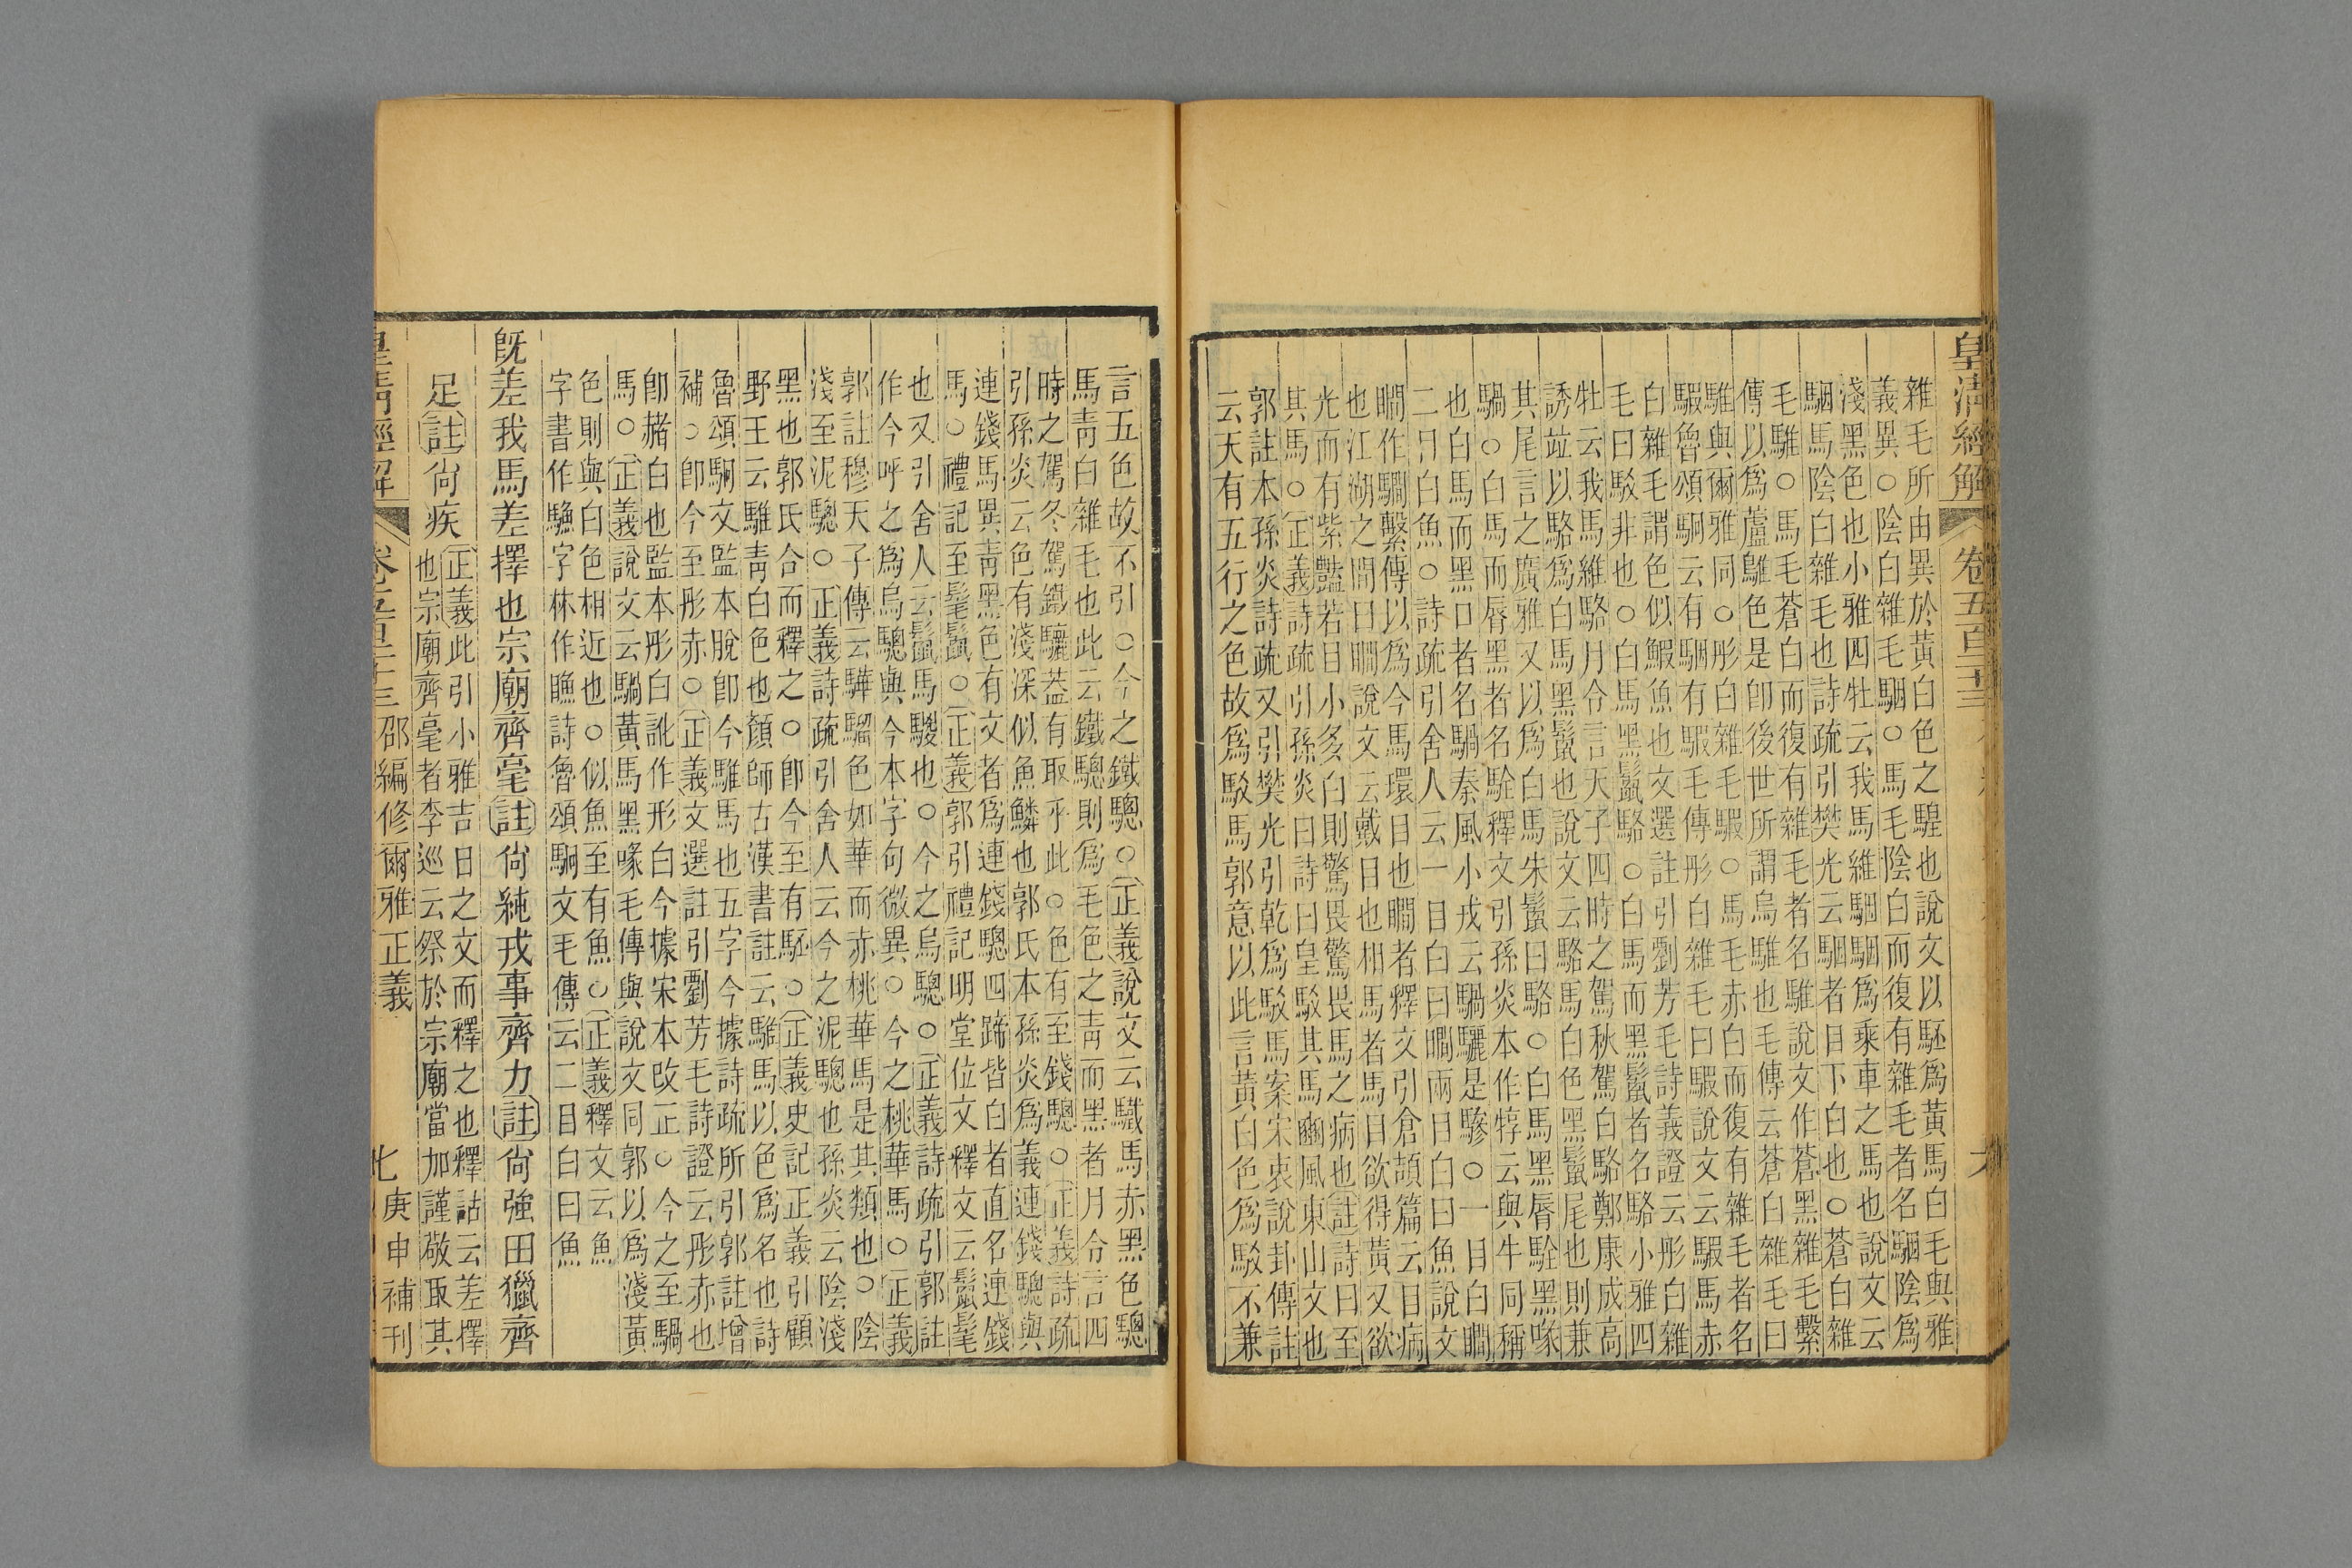 皇清經解 卷五百十三
雜毛所由異於黃白色之騜也說文以駓爲黃馬白毛與雅
義異○陰白雜毛駰○馬毛陰白而復有雜毛者名駰陰爲
淺黑色也小雅四牡云我馬維駰駰爲乘車之馬也說文云
駰馬陰白雜毛也詩疏引樊光云駰者目下白也○蒼白雜
毛騅○馬毛蒼白而復有雜毛者名騅說文作蒼黑雜毛繫
傳以爲蘆鵻色是卽後世所謂烏騅也毛傳云蒼白雜毛曰
騅與爾雅同○彤白雜毛騢○馬毛赤白而復有雜毛者名
騢魯頌駉云有駰有騢毛傳彤白雜毛曰騢說文云騢馬赤
白雜毛謂色似鰕魚也文選註引劉芳毛詩義證云彤白雜
毛曰駁非也○白馬黑鬛駱○白馬而黑鬛者名駱小雅四
牡云我馬維駱月令言天子四時之駕秋駕白駱鄭康成高
誘竝以駱爲白馬黑鬛也說文云駱馬白色黑鬛尾也則兼
其尾言之廣雅又以爲白馬朱鬛曰駱○白馬黑脣駩黑喙
騧○白馬而脣黑者名駩釋文引孫炎本作犉云與牛同稱
也白馬而黑口者名騧秦風小戎云騧驪是驂○一目白瞯
二目白魚○詩疏引舍人云一目白曰瞯兩目白曰魚說文
瞯作騆繫傳以爲今馬環目也瞯者釋文引倉頡篇云目病
也江湖之間曰瞯說文云戴目也相馬者馬目欲得黃又欲
光而有紫豔若目小多白則驚畏驚畏馬之病也註詩曰至
其馬○正義詩疏引孫炎曰詩曰皇駁其馬豳風東山文也
郭註本孫炎詩疏又引樊光引乾爲駁馬案宋衷說卦傳註
云天有五行之色故爲駁馬郭意以此言黃白色爲駁不兼
言五色故不引○今之鐵驄○正義說文云驖馬赤黑色驄
馬靑白雜毛也此云鐵驄則爲毛色之靑而黑者月令言四
時之駕冬駕鐵驪葢有取乎此○色有至錢驄○正義詩疏
引孫炎云色有淺深似魚鱗也郭氏本孫炎爲義連錢驄與
連錢馬異靑黑色有文者爲連錢驄四蹄皆白者直名連錢
馬○禮記至髦鬛○正義郭引禮記明堂位文釋文云鬛髦
也又引舍人云鬛馬騣也○今之烏驄○正義詩疏引郭註
作今呼之爲烏驄與今本字句微異○今之桃華馬○正義
郭註穆天子傳云驊騮色如華而赤桃華馬是其類也○陰
淺至泥驄○正義詩疏引舍人云今之泥驄也孫炎云陰淺
黑也郭氏合而釋之○卽今至有駓○正義史記正義引顧
野王云騅靑白色也顏師古漢書註云騅馬以色爲名也詩
魯頌駉文監本脫卽今騅馬也五字今據詩疏所引郭註增
補○卽今至彤赤○正義文選註引劉芳毛詩證云彤赤也
卽赭白也監本彤白訛作形白今據宋本改正○今之至騧
馬○正義說文云騧黃馬黑喙毛傳與說文同郭以爲淺黃
色則與白色相近也○似魚至有魚○正義釋文云魚
字書作䲣字林作瞧詩魯頌駉文毛傳云二目白曰魚
旣差我馬差擇也宗廟齊毫註尙純戎事齊力註尙強田獵齊
足註尙疾正義此引小雅吉日之文而釋之也釋詁云差擇
也宗廟齊毫者李巡云祭於宗廟當加謹敬取其
皇淸經解 邵編修爾雅正義 七 庚申補刊